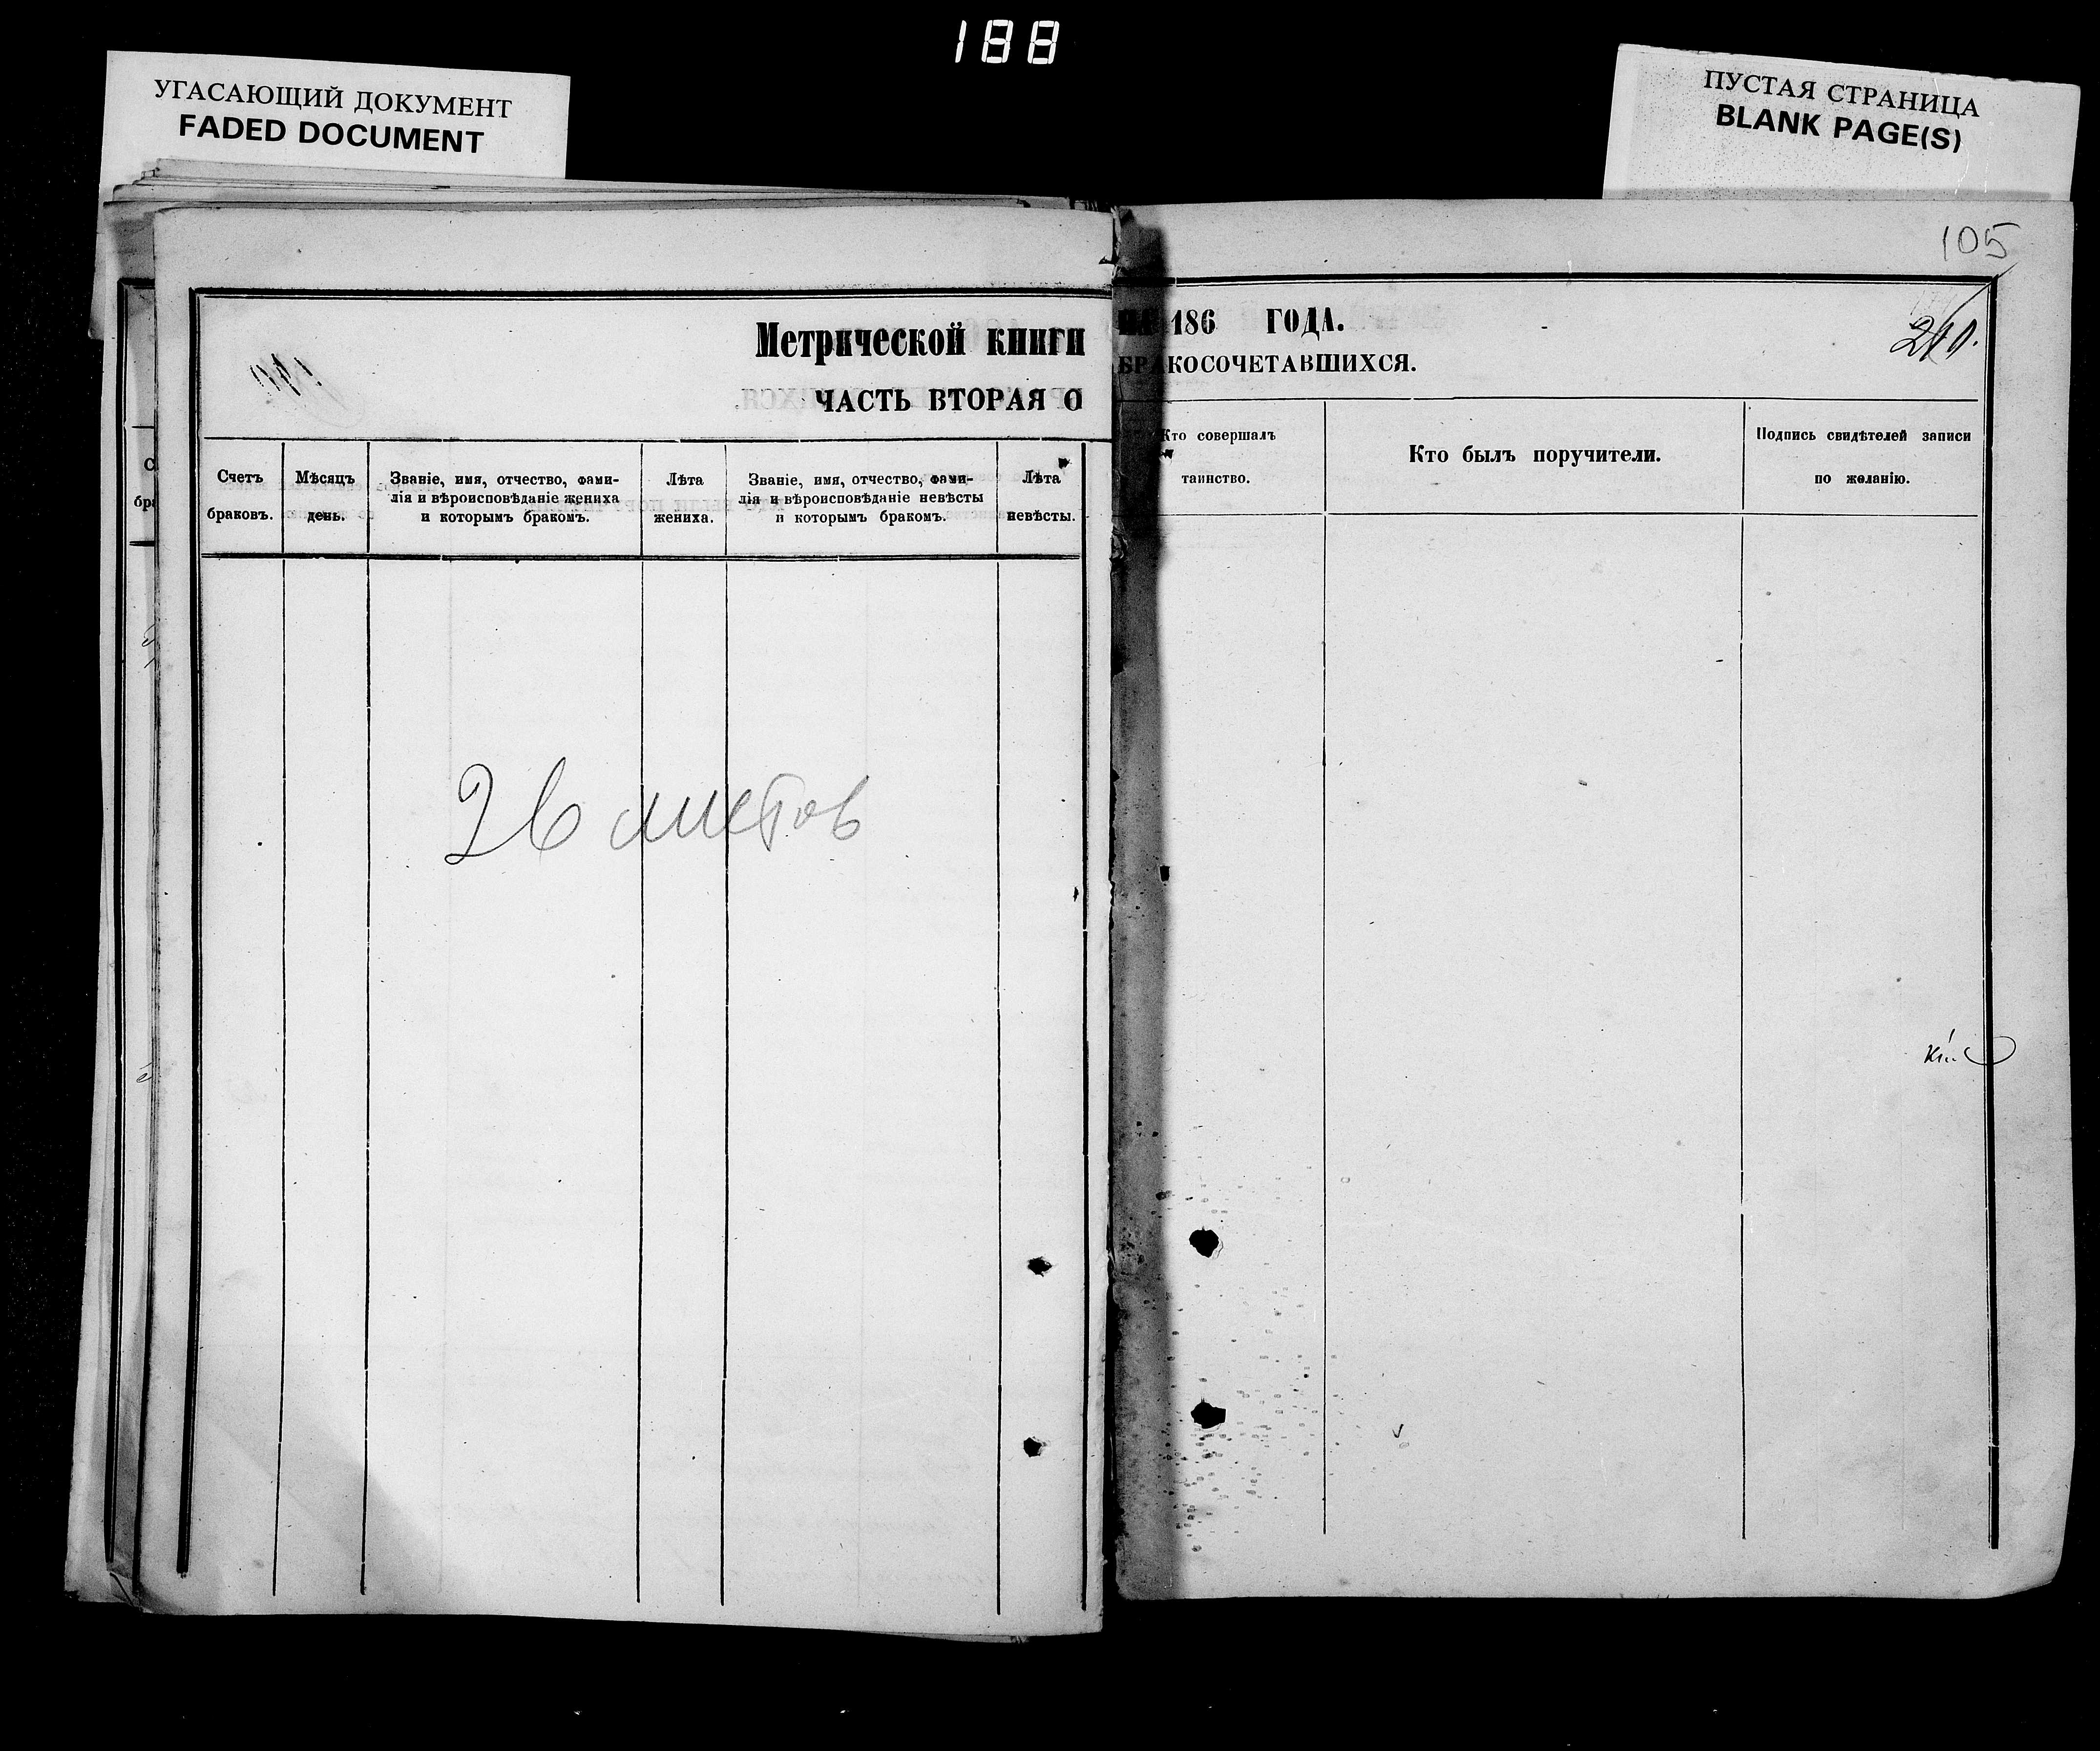 188
УГАСАЮЩИЙ ДОКУМЕНТ
FADED DOCUMENT
ПУСТАЯ СТРАНИЦА
BLANK PAGE(S)
105
Метрической книги
ЧАСТЬ ВТОРАЯ О
Счетъ браковъ.
Мѣсяцъ день.
Званіе, имя, отчество, фами-
лія и вѣроисповѣданіе жениха
и которымъ бракомъ.
Лѣта жениха.
Званіе, имя, отчество, фами-
лія и вѣроисповѣданіе невѣсты
и которымъ бракомъ.
Лѣта невѣсты.
26 листов
186 ГОДА.
БРАКОСОЧЕТАВШИХСЯ.
210.
Кто совершалъ
таинство.
Кто былъ поручители.
Подпись свидѣтелей записи
по желанію.